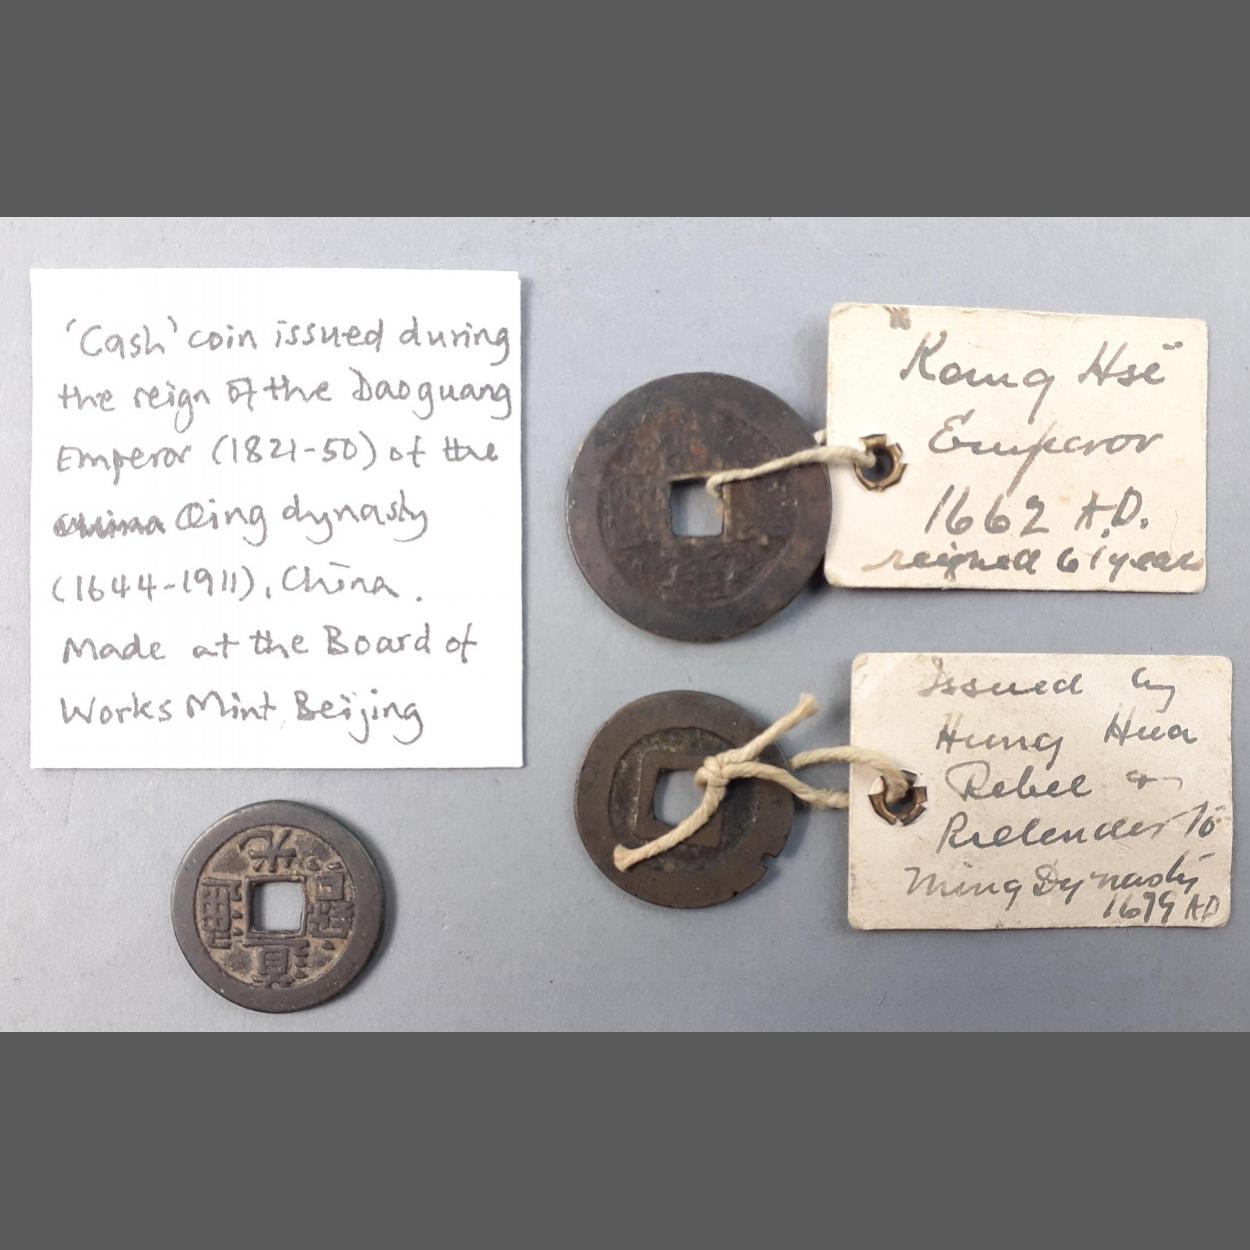 'Cash' coin issued during
the reign of the Daoguang
Emperor (1821-50) of the
China Qing dynasty
(1644-1911), China.
Made at the Board of
Works Mint, Beijing
"Kang Hsi"
Emperor
1662 A.D.
reigned 61 years
Issued by
Hung Hua
Rebel &
Pretender to
Ming Dynasty
1679 AD
光
通 寶